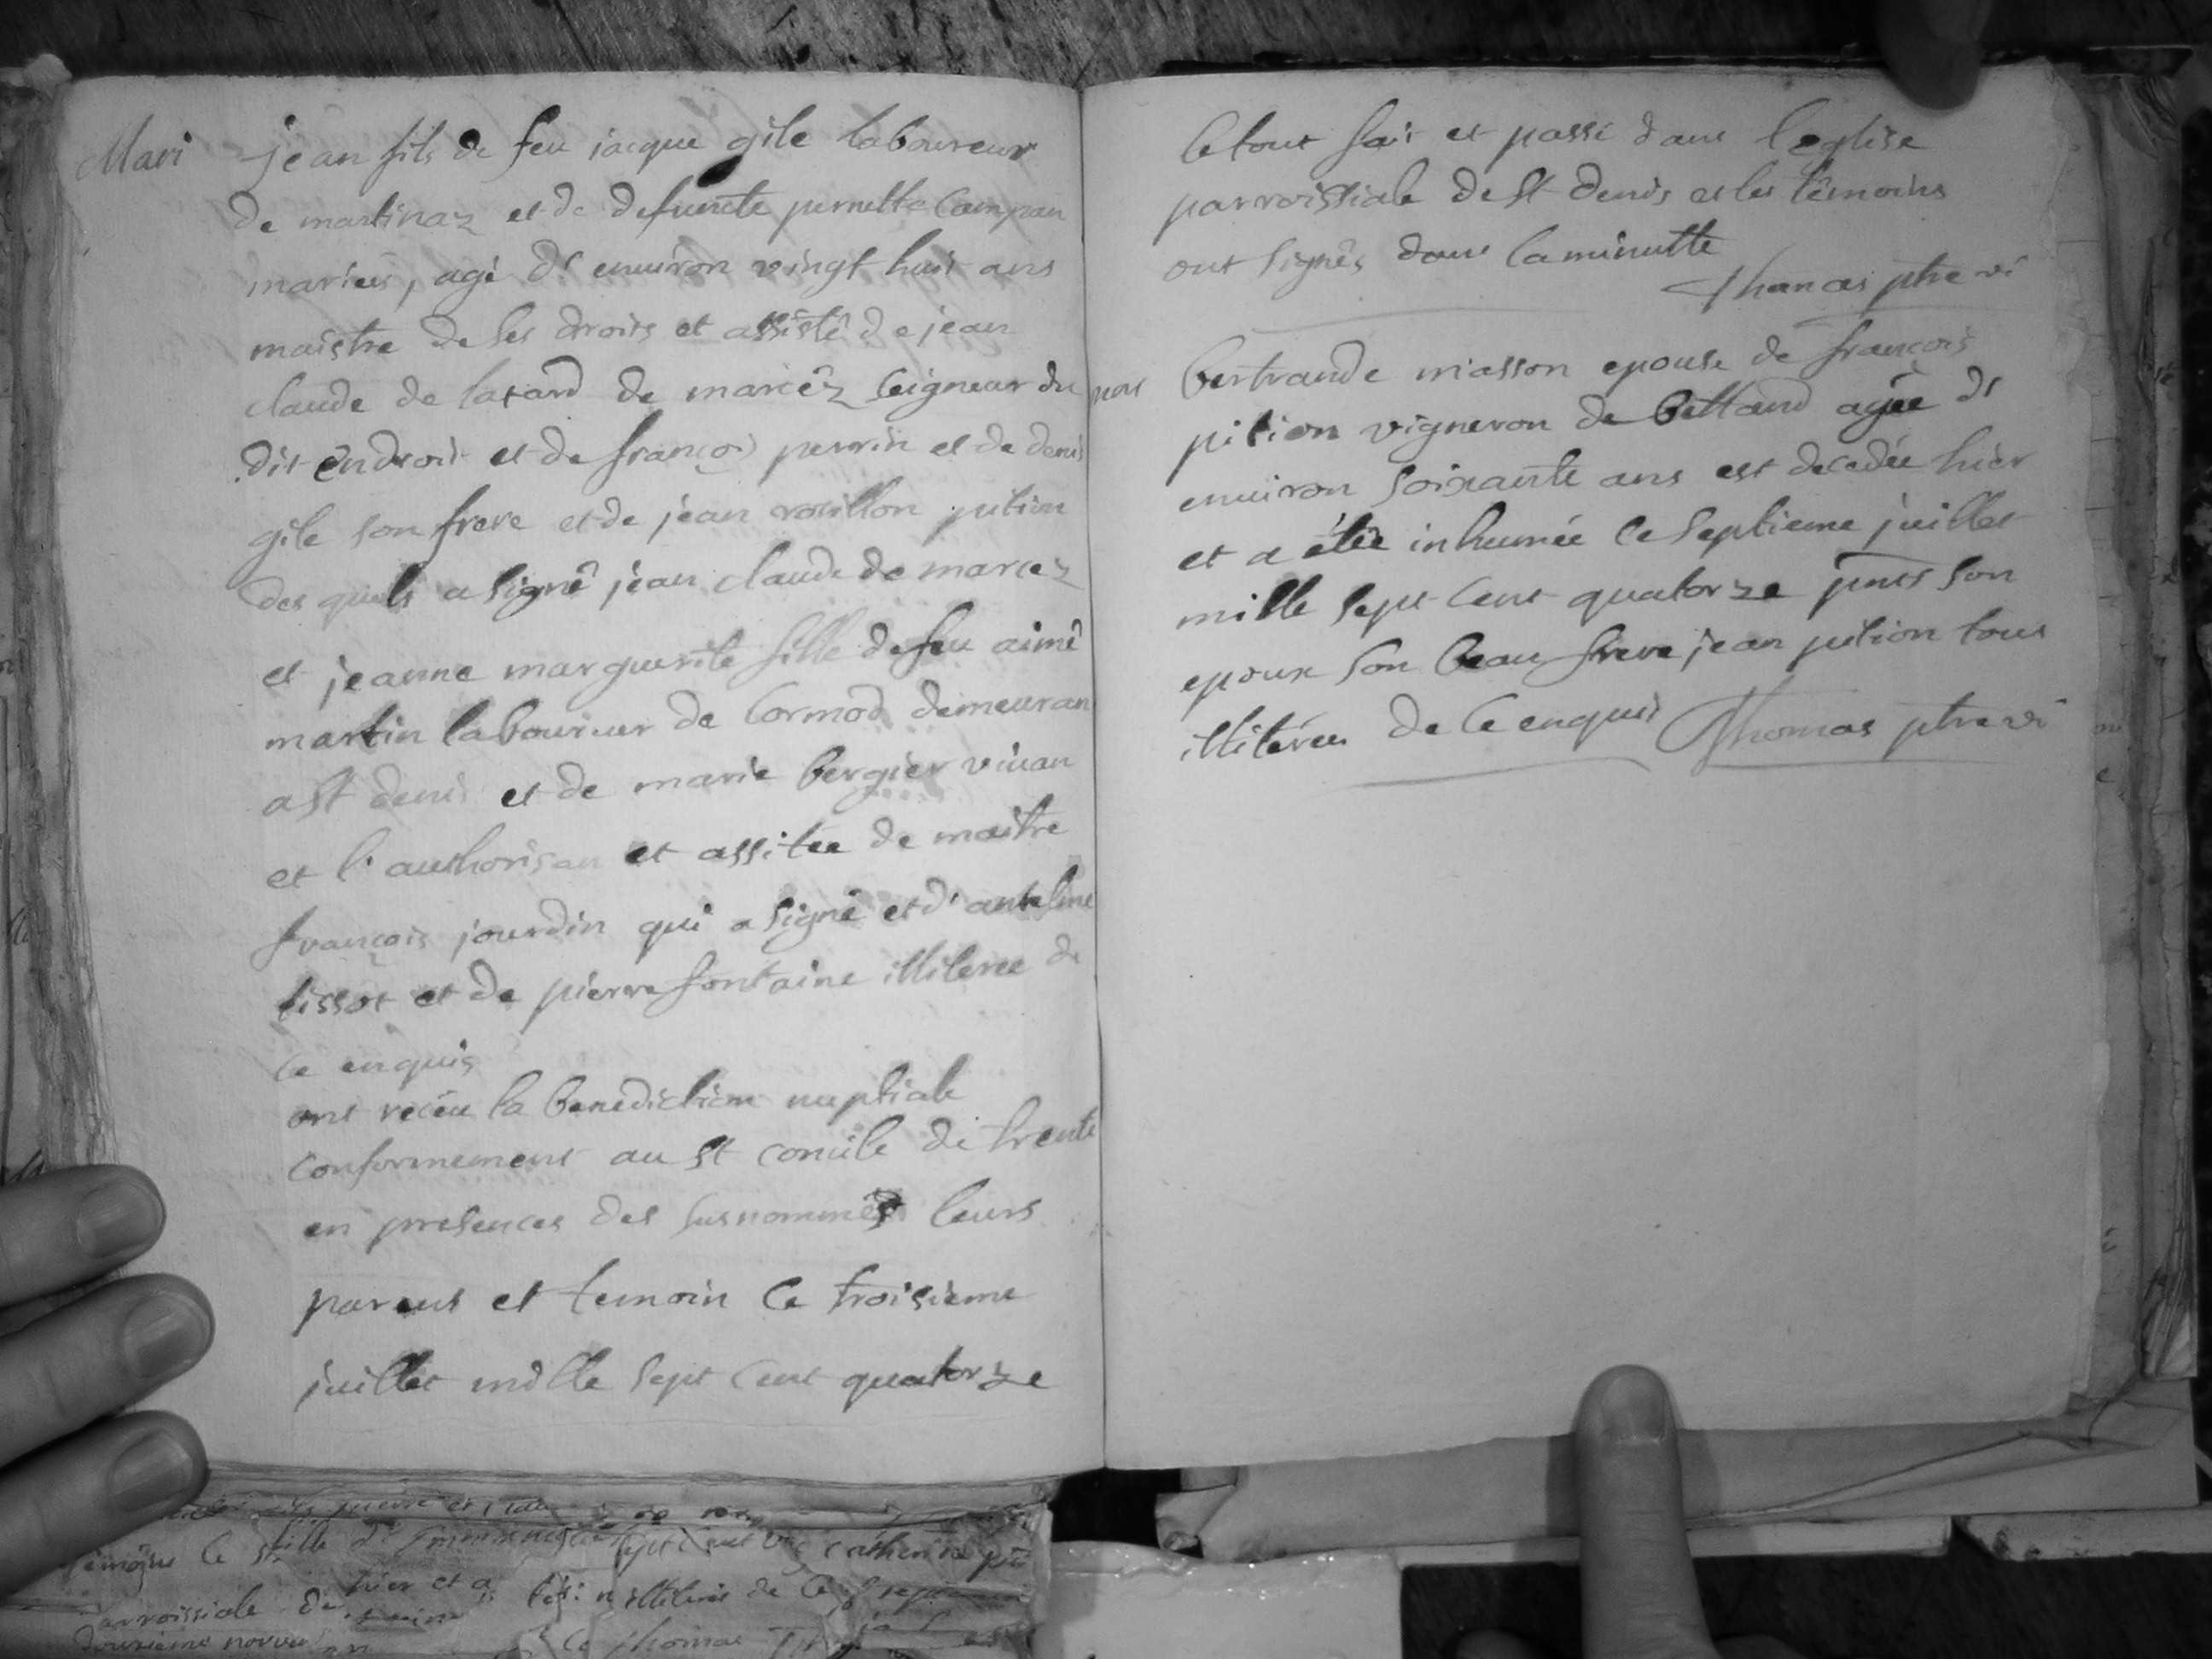 Mari jean fils de feu jacque gile laboureur
de martinaz et de defuncte pernette Campan
mariés, agé d' environ vingt huit ans
maistre de ses droits et assisté de jean
claude de de marcêz seigneur du
dit endroit et de françois perrin et de denis
gile son frere et de jean rouillon pition
des quels a signé jean claude de marcez
et jeanne marguerite fille de feu aimé
martin laboureur de Cormod demeuran
a st denis et de marie bergier vivan
et l' authorisan et assitée de maitre
françois jourdin qui a signé et d' antelme
tissot et de pierre fontaine illiteree de
ce enquis
ont recéu la benediction nuptiale
conformement au st concile de trente
en presences des susnommés leurs
parens et temoin ce troisieme
juillet mille sept cent quatorze
le tout fait et passé dans l'eglise
parroissiale de st denis et les têmoins
ont signés dans la minutte
Thomas ptre vi
mor bertrande masson epouse de françois
pition vigneron de bettand agée d'
environ soixante ans est decedée hier
et a étée inhumée ce septieme juillet
mille sept cent quatorze pnts son
epoux son beau frere jean pition tous
illiterés de ce enquis Thomas ptre vi